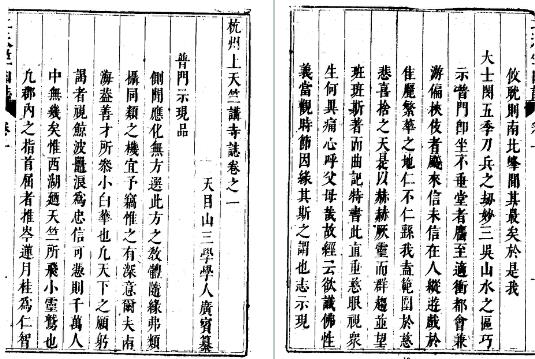 攸就則南北峯間其最矣於是我
大士閔五季刀兵之刼妙三吳山水之區巧
示普門卽坐不垂堂者麕至適衝都會兼
游偏挾伎者颷來信未信在人縱遊戲於
佳麗繁華之地仁不仁繇我盍範圍於慈
悲喜捨之天是以赫赫厥靈而群趨並望
班班斯著而曲記特書此直垂慈眼視眾
生何異痛心呼父母哉故經云欲識佛性
義當觀時節因緣其斯之謂也志示現
杭州上天竺講寺誌卷之一
天目山三學學人廣賓纂
普門示現品
側聞應化無方選此方之教體隨緣弗類
攝同類之機宜予竊惟之有深意爾夫南
海益善才所叅小白華也凡天下之顧躬
謁者視鯨波鼉浪為忠信可慿則千萬人
中無幾矣惟西湖天竺所飛小靈鷲也
凡郡內之指首屈者推岑蓮月桂為仁智